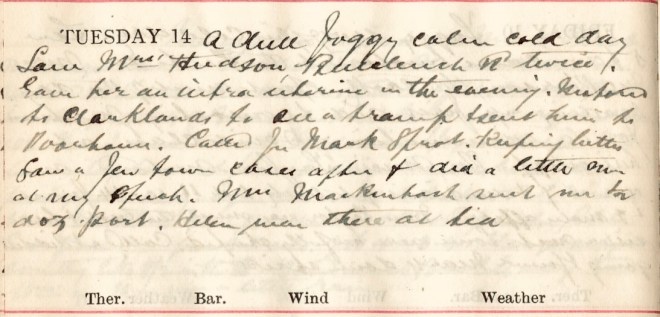 TUESDAY 14 A dull foggy calm cold day
Saw Mrs Hudson Buccleuch St twice.
Gave her an intra uterine in the evening. Motored
to Clarklands to see a tramp & sent him to
Poorhouse. Called for Mark Sprot. Keeping better
Saw a few town cases after & did a little more
at my speech. Mrs Mackintosh sent me to
doz port. Helen was there at tea
Ther. Bar. Wind Weather